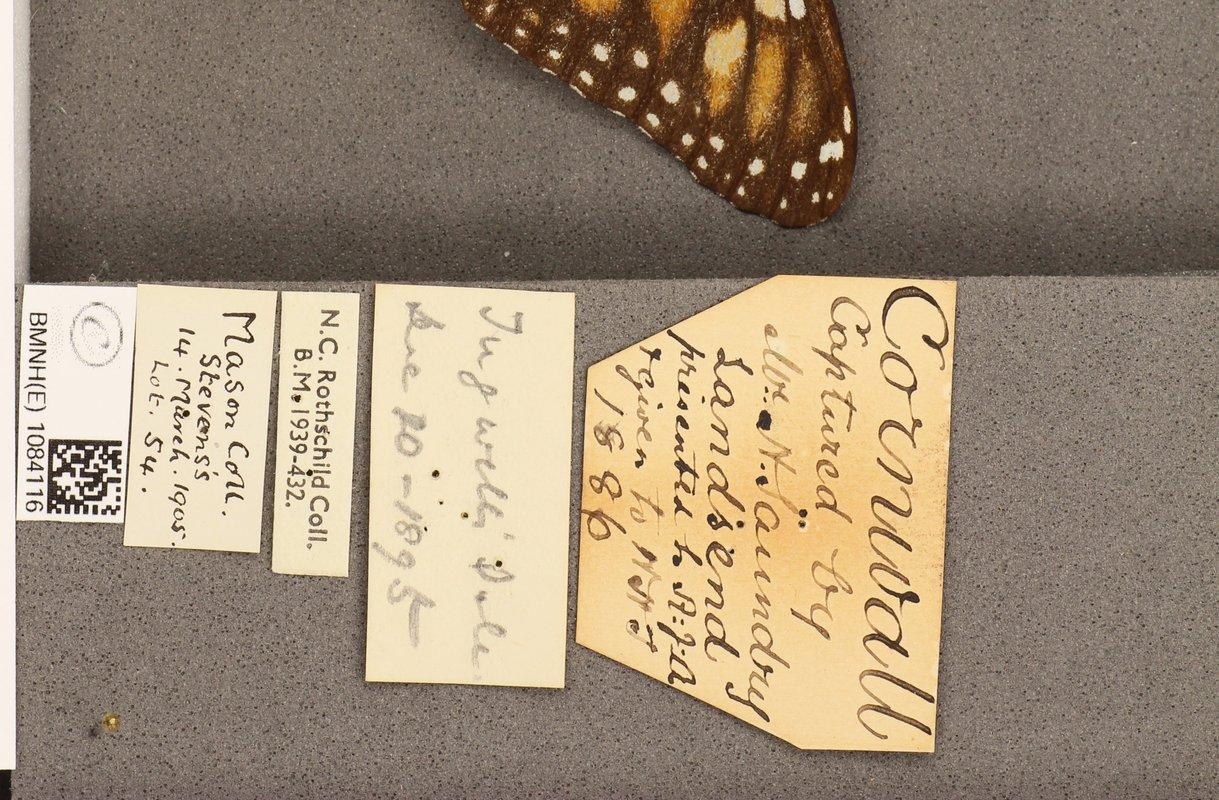 Cornwall
Captured by
Mr. A. Saundry
Landsend
presented to
given to
1886
Ingwell's Sale
Dec 20-1895
N.C. Rothschild Coll.
B.M. 1939-432.
Mason Coll.
Stevens's
14. March. 1905.
Lot. 54.
C
BMNH(E) 1084116